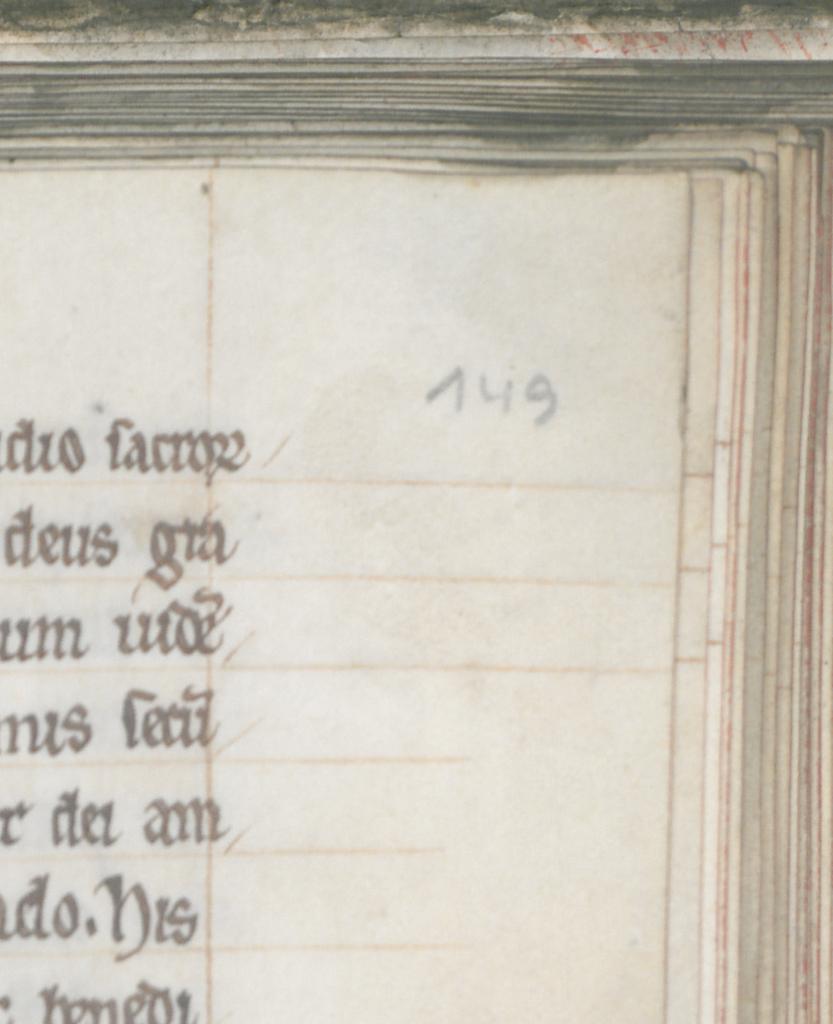 149
dio sacroꝝ
deus gra
um uidē
mus secū
dei am
do. His
benedi